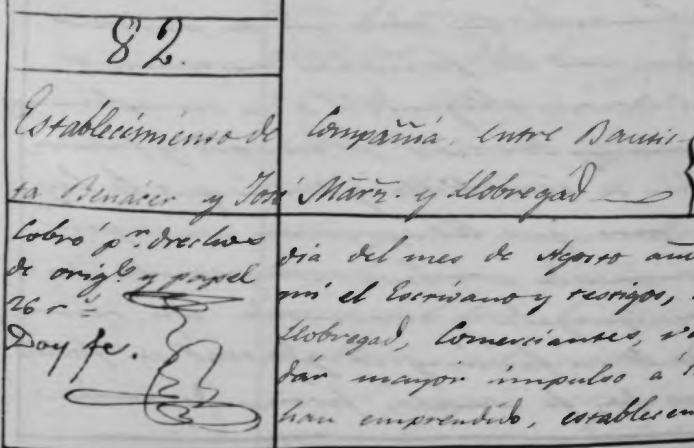 82.
Establecimiento de Compañía, entre Bautis-
ta Benácer y José Márz. y Llobregád
Cobró pr. drechos
de origl. y papel
26 rs.
Doy fe.
dia del mes de Agosto
mí el Escrivano y testigos,
Llobregad, Comerciantes,
dár mayor impulso á
han emprendido, establecen